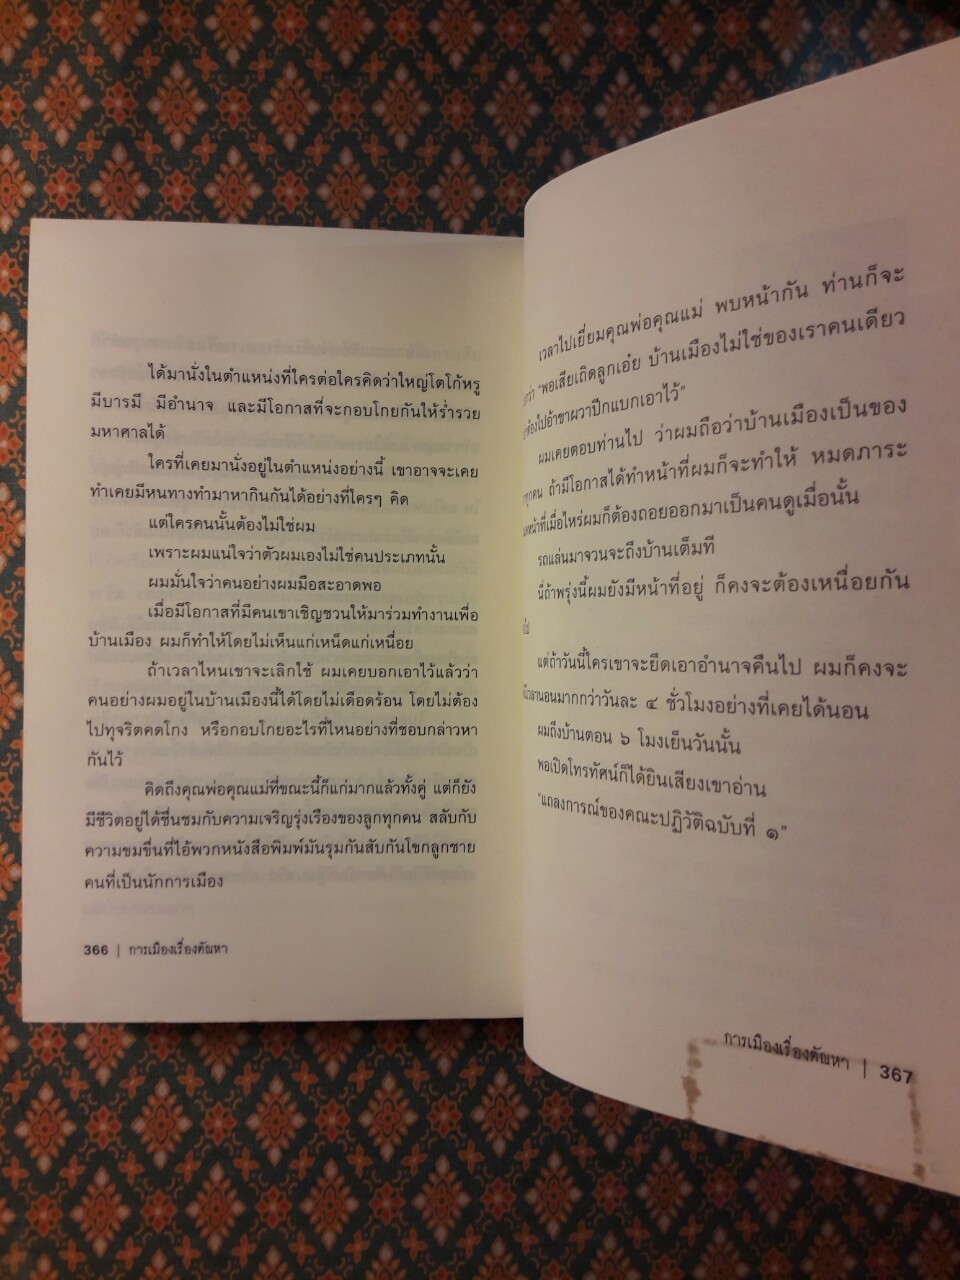 ได้มานั่งในตำแหน่งที่ใครต่อใครคิดว่าใหญ่โตโก้หรู
มีบารมี มีอำนาจ และมีโอกาสที่จะกอบโกยกันให้ร่ำรวย
มหาศาลได้
ใครที่เคยมานั่งอยู่ในตำแหน่งอย่างนี้ เขาอาจจะเคย
ทำเคยมีหนทางทำมาหากินกันได้อย่างที่ใครๆ คิด
แต่ใครคนนั้นต้องไม่ใช่ผม
เพราะผมแน่ใจว่าตัวผมเองไม่ใช่คนประเภทนั้น
ผมมั่นใจว่าคนอย่างผมมือสะอาดพอ
เมื่อมีโอกาสที่มีคนเขาเชิญชวนให้มาร่วมทำงานเพื่อ
บ้านเมือง ผมก็ทำให้โดยไม่เห็นแก่เหน็ดแก่เหนื่อย
ถ้าเวลาไหนเขาจะเลิกใช้ ผมเคยบอกเอาไว้แล้วว่า
คนอย่างผมอยู่ในบ้านเมืองนี้ได้โดยไม่เดือดร้อน โดยไม่ต้อง
ไปทุจริตคดโกง หรือกอบโกยอะไรที่ไหนอย่างที่ชอบกล่าวหา
กันไว้
คิดถึงคุณพ่อคุณแม่ที่ขณะนี้ก็แก่มากแล้วทั้งคู่ แต่ก็ยัง
มีชีวิตอยู่ได้ชื่นชมกับความเจริญรุ่งเรืองของลูกทุกคน สลับกับ
ความขมขื่นที่ไอ้พวกหนังสือพิมพ์มันรุมกันสับกันโขกลูกชาย
คนที่เป็นนักการเมือง
366 | การเมืองเรื่องตัณหา
เวลาไปเยี่ยมคุณพ่อคุณแม่ พบหน้ากัน ท่านก็จะ
ว่า "พอเสียเถิดลูกเอ๋ย บ้านเมืองไม่ใช่ของเราคนเดียว
ต้องไปอ้าขาผวาปีกแบกเอาไว้"
ผมเคยตอบท่านไป ว่าผมถือว่าบ้านเมืองเป็นของ
ทุกคน ถ้ามีโอกาสได้ทำหน้าที่ผมก็จะทำให้ หมดภาระ
หน้าที่เมื่อไหร่ผมก็ต้องถอยออกมาเป็นคนดูเมื่อนั้น
รถแล่นมาจวนจะถึงบ้านเต็มที
นี่ถ้าพรุ่งนี้ผมยังมีหน้าที่อยู่ ก็คงจะต้องเหนื่อยกัน
แต่ถ้าวันนี้ใครเขาจะยึดเอาอำนาจคืนไป ผมก็คงจะ
มีเวลานอนมากกว่าวันละ ๔ ชั่วโมงอย่างที่เคยได้นอน
ผมถึงบ้านตอน ๖ โมงเย็นวันนั้น
พอเปิดโทรทัศน์ก็ได้ยินเสียงเขาอ่าน
"แถลงการณ์ของคณะปฏิวัติฉบับที่ ๑"
การเมืองเรื่องตัณหา | 367